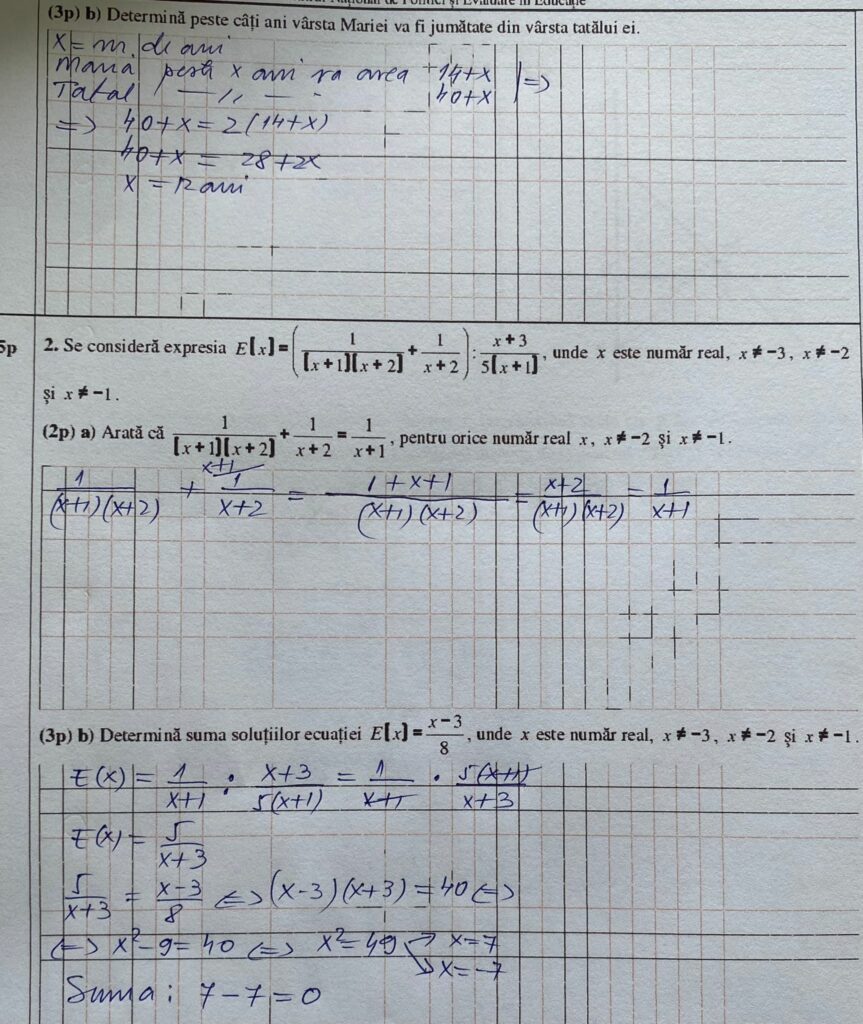 (3p) b) Determină peste câți ani vârsta Mariei va fi jumătate din vârsta tatălui ei.
x = nr. de ani
Maria peste x ani va avea 14+x
Tatăl — ,, — 40+x | =>
=> 40+x = 2(14+x)
40+x = 28+2x
x = 12 ani
5p 2. Se consideră expresia E[x] = (1/([x+1][x+2]) + 1/(x+2)) : (x+3)/(5[x+1]), unde x este număr real, x ≠ −3, x ≠ −2
și x ≠ −1.
(2p) a) Arată că 1/([x+1][x+2]) + 1/(x+2) = 1/(x+1), pentru orice număr real x, x ≠ −2 și x ≠ −1.
1/((x+1)(x+2)) + x+1) 1/(x+2) = (1+x+1)/((x+1)(x+2)) = (x+2)/((x+1)(x+2)) = 1/(x+1)
(3p) b) Determină suma soluțiilor ecuației E[x] = (x−3)/8, unde x este număr real, x ≠ −3, x ≠ −2 și x ≠ −1.
E(x) = 1/(x+1) : (x+3)/(5(x+1)) = 1/(x+1) · 5(x+1)/(x+3)
E(x) = 5/(x+3)
5/(x+3) = (x-3)/8 <=> (x-3)(x+3) = 40 <=>
<=> x²-9 = 40 <=> x² = 49 → x=7
→ x=-7
Suma: 7-7=0